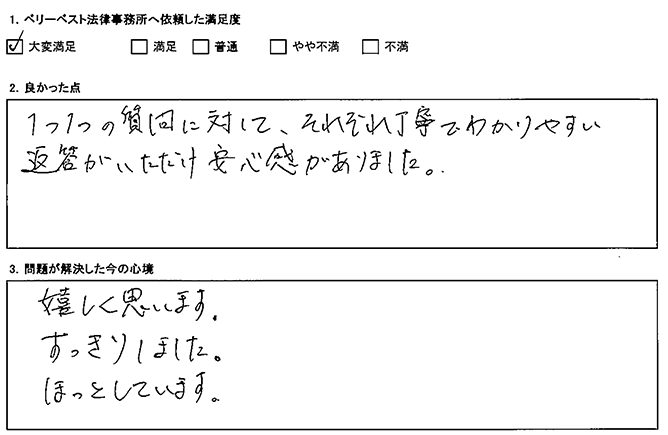 1. ベリーベスト法律事務所へ依頼した満足度
☑ 大変満足 □ 満足 □ 普通 □ やや不満 □ 不満
2. 良かった点
1つ1つの質問に対して、それぞれ丁寧でわかりやすい
返答がいただけ安心感がありました。
3. 問題が解決した今の心境
嬉しく思います。
すっきりしました。
ほっとしています。